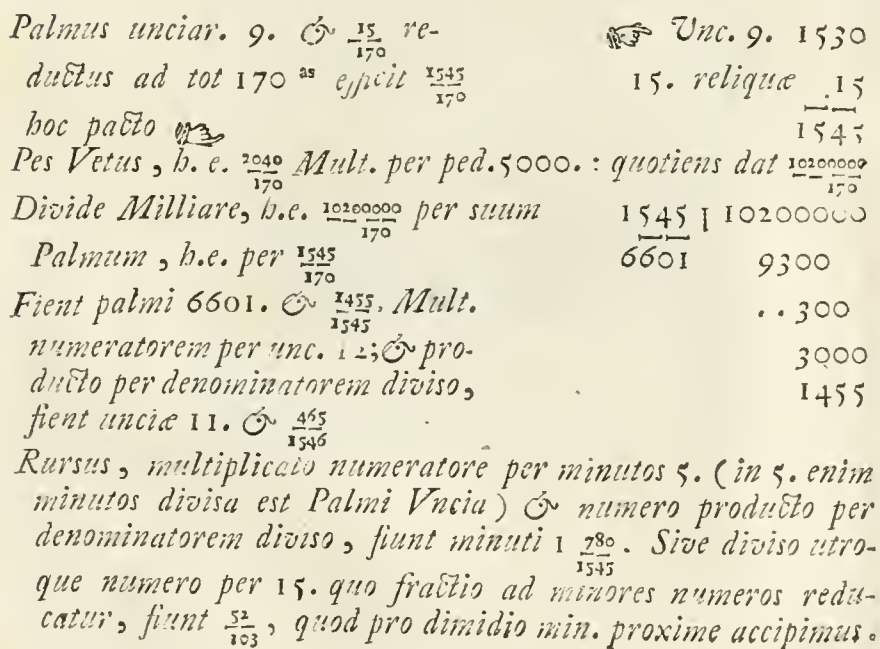 Palmus unciar. 9. & 15/170 re- ☞ Unc. 9. 1530
ductus ad tot 170 as efficit 1545/170 15. reliquæ 15
hoc pacto ☞ 1545
Pes Vetus, h. e. 2040/170 Mult. per ped. 5000. : quotiens dat 10200000/170
Divide Milliare, h.e. 10200000/170 per suum 1545 | 10200000
Palmum, h.e. per 1545/170 6601 9300
Fient palmi 6601. & 1455/1545. Mult. . . 300
numeratorem per unc. 12; & pro- 3000
ducto per denominatorem diviso, 1455
fient unciæ 11. & 465/1546
Rursus, multiplicato numeratore per minutos 5. (in 5. enim
minutos divisa est Palmi Vncia) & numero producto per
denominatorem diviso, fiunt minuti 1 780/1545. Sive diviso utro-
que numero per 15. quo fractio ad minores numeros redu-
catur, fiunt 52/103, quod pro dimidio min. proxime accipimus.